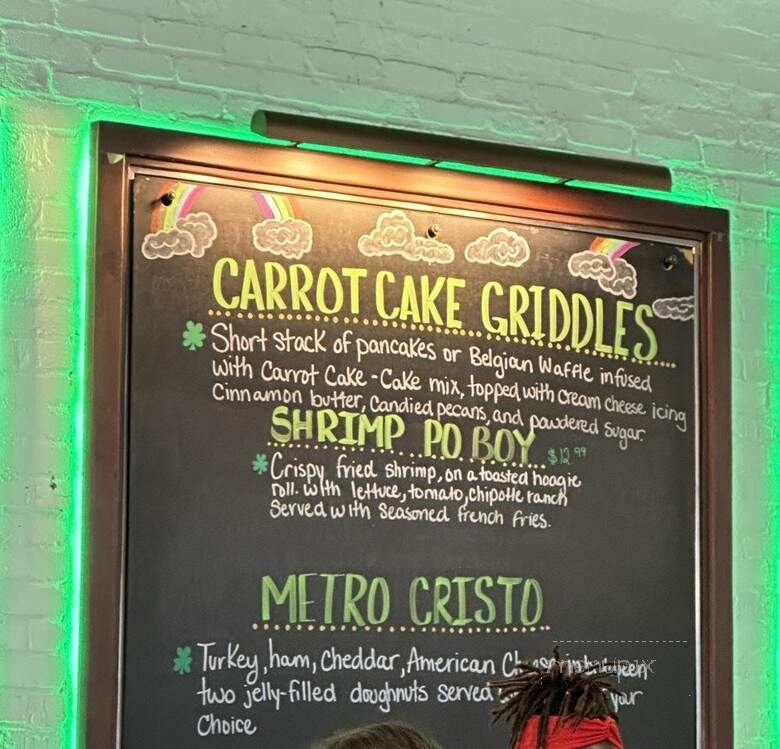 CARROT CAKE GRIDDLES
Short stack of pancakes or Belgian Waffle infused
with Carrot Cake - Cake mix, topped with cream cheese icing
Cinnamon butter, Candied pecans, and powdered Sugar
SHRIMP PO BOY $12.99
Crispy fried shrimp, on a toasted hoagie
roll. with lettuce, tomato, chipotle ranch
Served with Seasoned french fries.
METRO CRISTO
Turkey, ham, Cheddar, American
two jelly-filled doughnuts served your
Choice